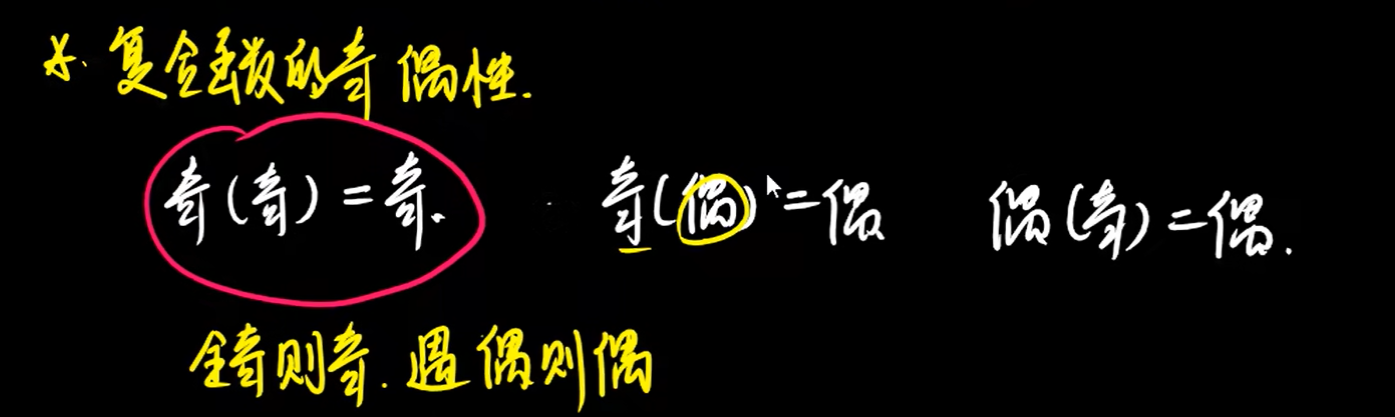 *. 复合函数的奇偶性.
奇(奇)=奇. 奇(偶)=偶 偶(奇)=偶.
全奇则奇. 遇偶则偶